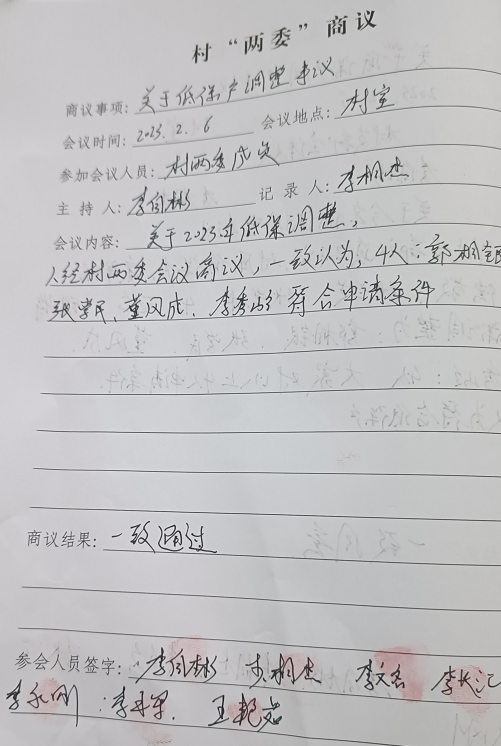 村“两委”商议
商议事项：关于低保户调整事议
会议时间：2023.2.6 会议地点：村室
参加会议人员：村两委成员
主持人：李自彬 记录人：李相杰
会议内容：关于2023年低保调整，
人经村两委会议商议，一致认为，4人：郭相
张学民、董风成、李秀 符合申请条件
商议结果：一致通过
参会人员签字：李自彬 李相杰 李文 李长江
李永刚 李 王艳